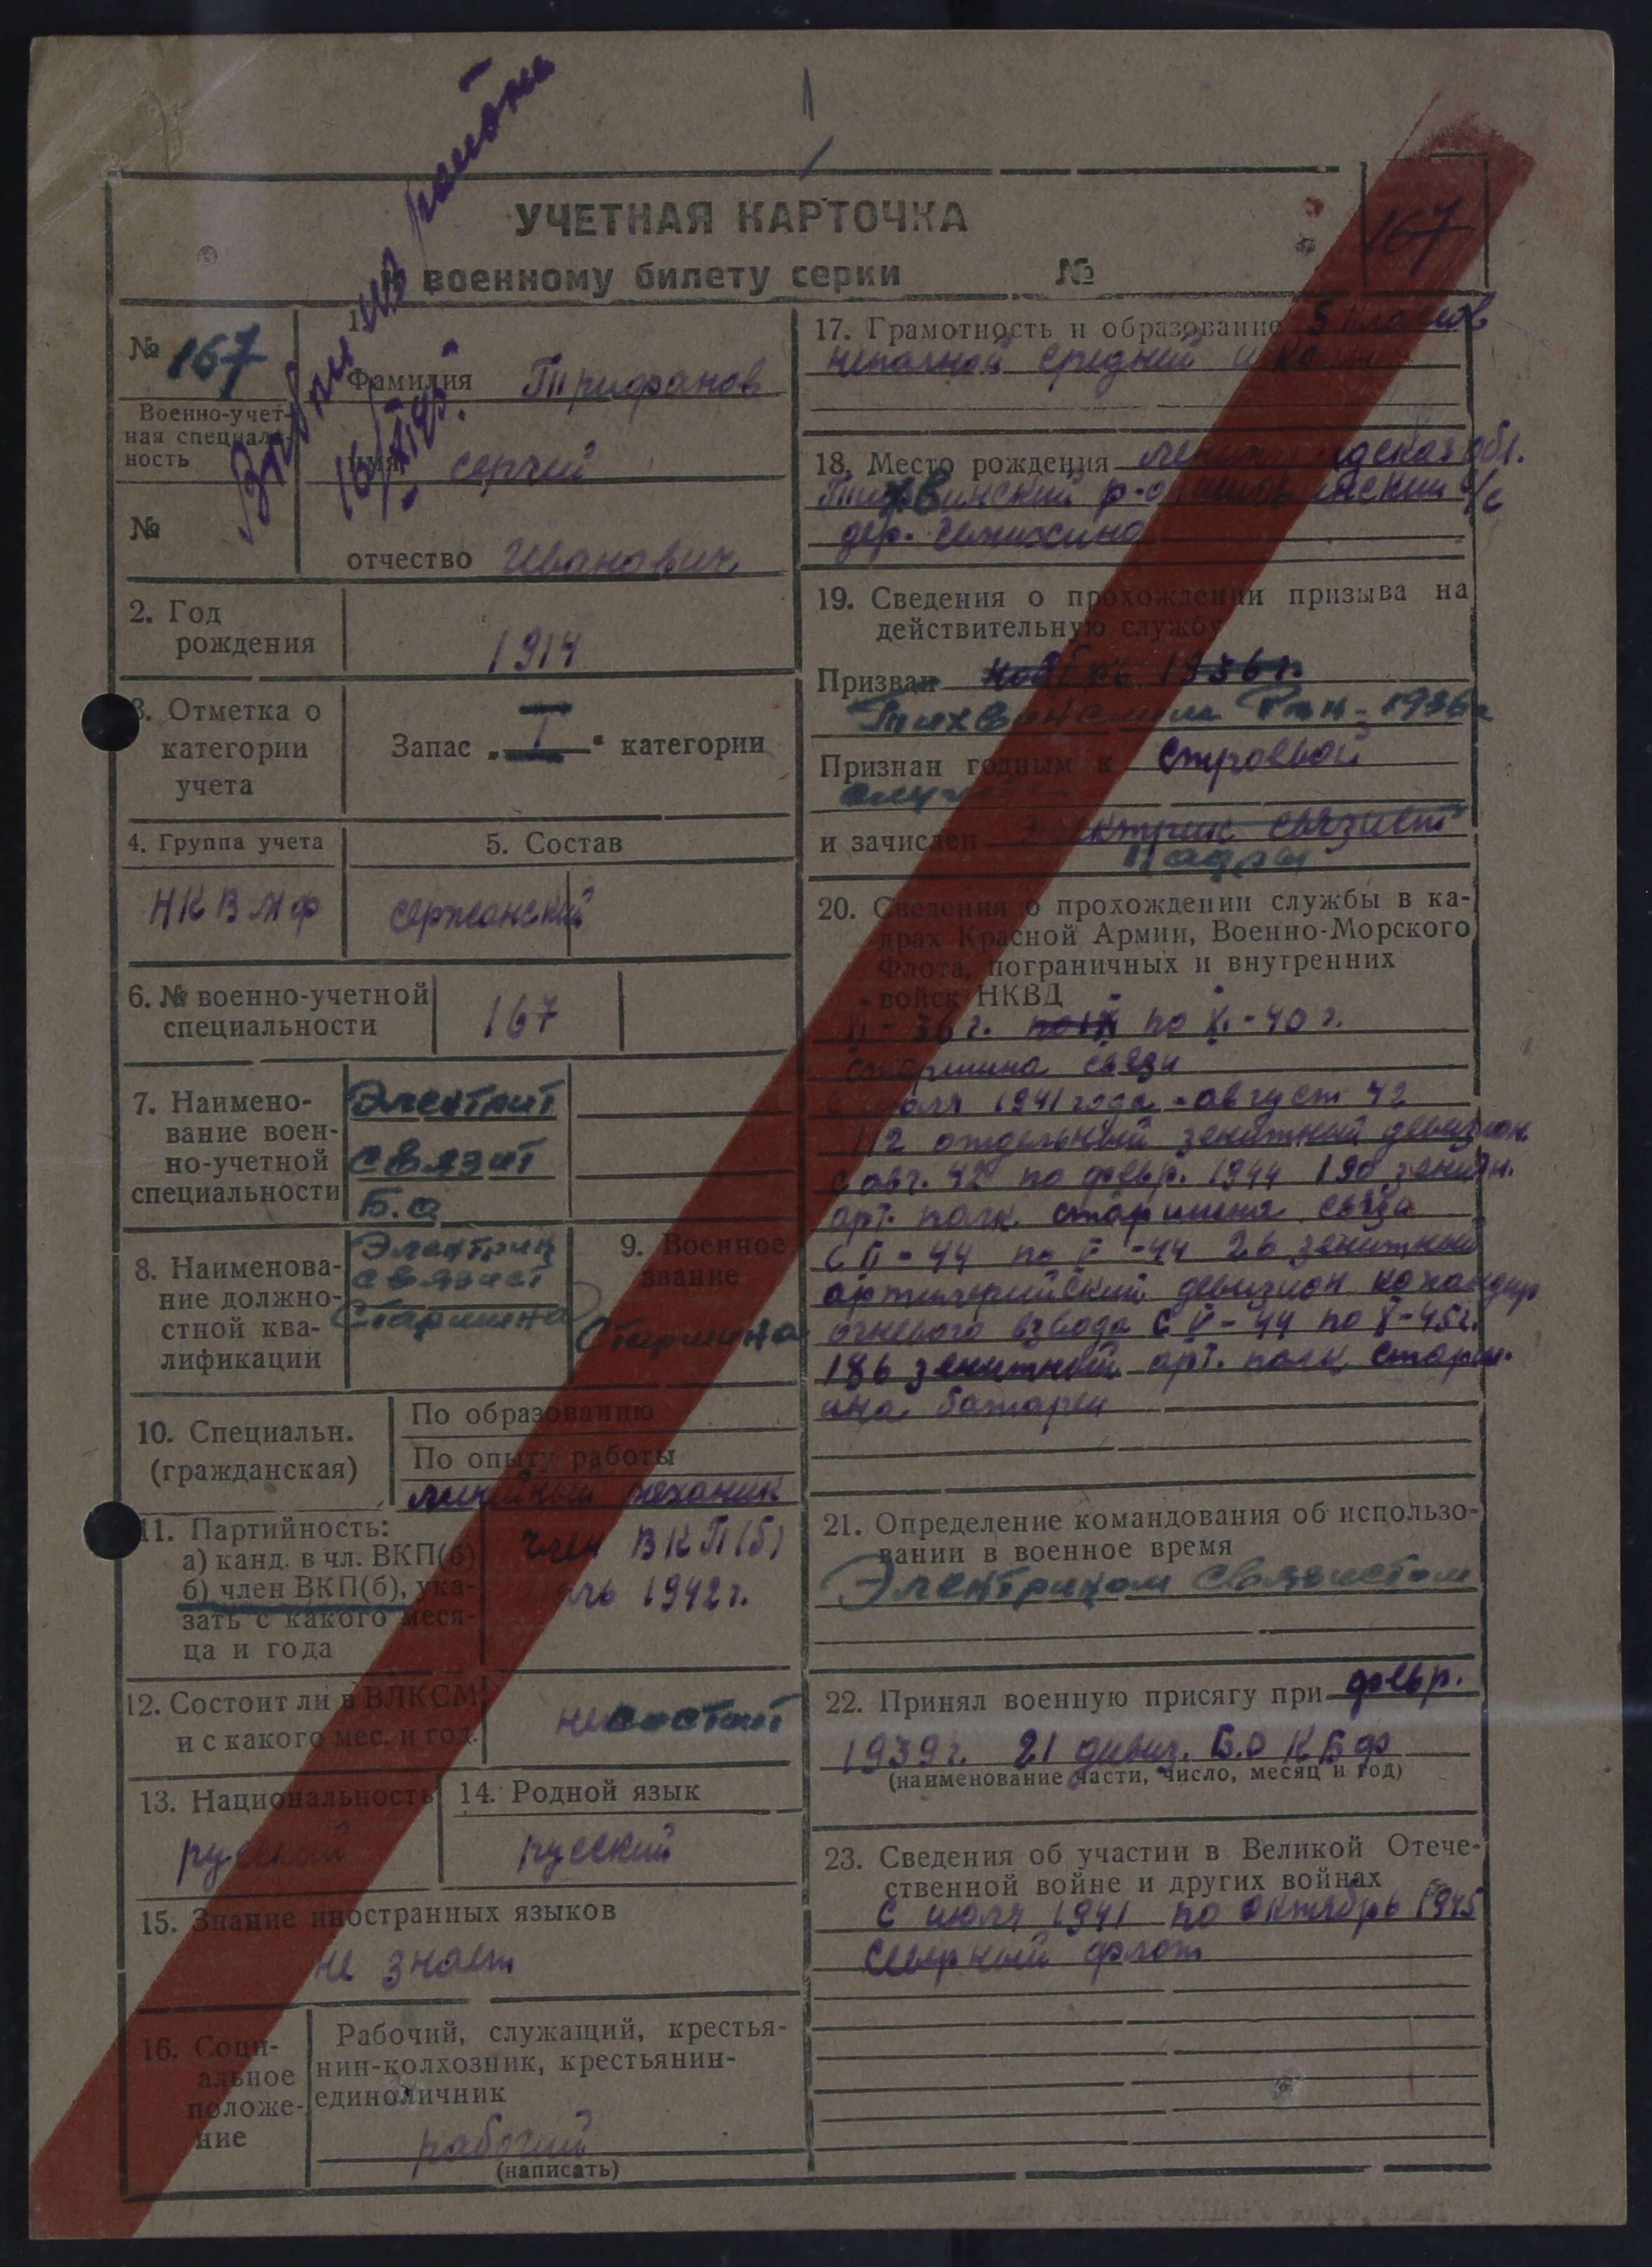 Выбыл из района
16/XI 45г.
УЧЕТНАЯ КАРТОЧКА
к военному билету серки №
167
№ 167
Военно-учет-
ная специаль-
ность
№
1.
Фамилия Трифанов
имя сергей
отчество Иванович
2. Год
рождения
1914
3. Отметка о
категории
учета
Запас „I“ категории
4. Группа учета
НКВМФ
5. Состав
сержанский
6. № военно-учетной
специальности
167
7. Наимено-
вание воен-
но-учетной
специальности
Электрит
связит
Б.О
8. Наименова-
ние должно-
стной ква-
лификации
Электрик
связист
Старшина
9. Военное
звание
Старшина
10. Специальн.
(гражданская)
По образованию
По опыту работы
линейный механик
11. Партийность:
а) канд. в чл. ВКП(б)
б) член ВКП(б), ука-
зать с какого меся-
ца и года
член ВКП(б)
1942г.
12. Состоит ли в ВЛКСМ
и с какого мес. и год.
не состоит
13. Национальность
русский
14. Родной язык
русский
15. Знание иностранных языков
не знает
16. Соци-
альное
положе-
ние
Рабочий, служащий, крестья-
нин-колхозник, крестьянин-
единоличник
рабочий
(написать)
17. Грамотность и образование 5 класов
неполной средний школы
18. Место рождения ленинградская обл.
Тихвинский р-о с/с
дер.
19. Сведения о прохождении призыва на
действительную службу
Призван ноябрь 1936г.
Тихвинским Рвк - 1936г
Признан годным к строевой
службе
и зачислен электрик связист
кадры
20. Сведения о прохождении службы в ка-
драх Красной Армии, Военно-Морского
Флота, пограничных и внутренних
войск НКВД
XI - 36 г. по XI - 40 г.
старшина связи
с июля 1941 года - август 42
112 отдельный зенитный девизион
с авг. 42 по февр. 1944 190 зенитн.
арт. полк. старшина связи
с II - 44 по V - 44 26 зенитной
артилерийский девизион командир
огневого взвода с V - 44 по X - 45г.
186 зенитный арт. полк старш.
ина батареи
21. Определение командования об использо-
вании в военное время
Электриком связистом
22. Принял военную присягу при февр.
1939г. 21 дивиз. Б.О КБФ
(наименование части, число, месяц и год)
23. Сведения об участии в Великой Отече-
ственной войне и других войнах
с июля 1941 по октябрь 1945
северный флот